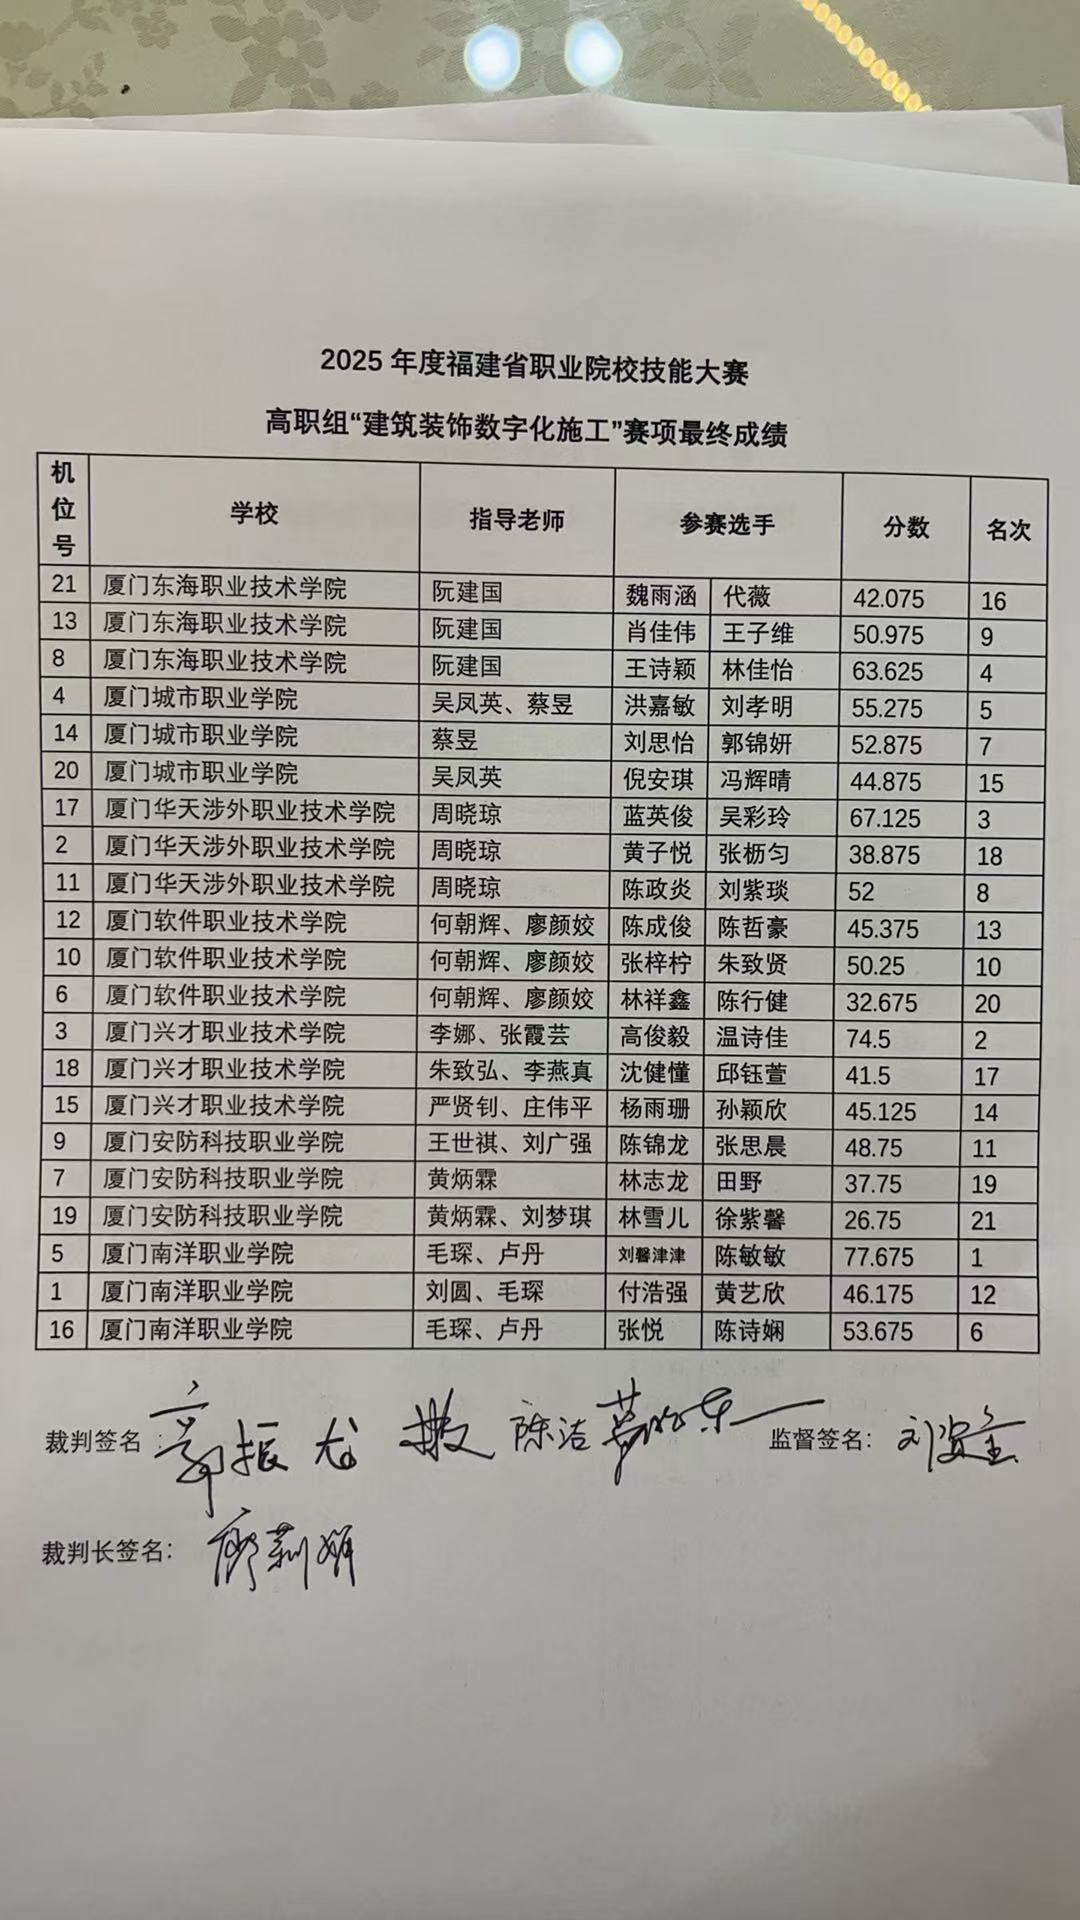 2025 年度福建省职业院校技能大赛
高职组“建筑装饰数字化施工”赛项最终成绩
机位号 学校 指导老师 参赛选手 分数 名次
21 厦门东海职业技术学院 阮建国 魏雨涵 代薇 42.075 16
13 厦门东海职业技术学院 阮建国 肖佳伟 王子维 50.975 9
8 厦门东海职业技术学院 阮建国 王诗颖 林佳怡 63.625 4
4 厦门城市职业学院 吴凤英、蔡昱 洪嘉敏 刘孝明 55.275 5
14 厦门城市职业学院 蔡昱 刘思怡 郭锦妍 52.875 7
20 厦门城市职业学院 吴凤英 倪安琪 冯辉晴 44.875 15
17 厦门华天涉外职业技术学院 周晓琼 蓝英俊 吴彩玲 67.125 3
2 厦门华天涉外职业技术学院 周晓琼 黄子悦 张枥匀 38.875 18
11 厦门华天涉外职业技术学院 周晓琼 陈政炎 刘紫琰 52 8
12 厦门软件职业技术学院 何朝辉、廖颜姣 陈成俊 陈哲豪 45.375 13
10 厦门软件职业技术学院 何朝辉、廖颜姣 张梓柠 朱致贤 50.25 10
6 厦门软件职业技术学院 何朝辉、廖颜姣 林祥鑫 陈行健 32.675 20
3 厦门兴才职业技术学院 李娜、张霞芸 高俊毅 温诗佳 74.5 2
18 厦门兴才职业技术学院 朱致弘、李燕真 沈健懂 邱钰萱 41.5 17
15 厦门兴才职业技术学院 严贤钊、庄伟平 杨雨珊 孙颖欣 45.125 14
9 厦门安防科技职业学院 王世祺、刘广强 陈锦龙 张思晨 48.75 11
7 厦门安防科技职业学院 黄炳霖 林志龙 田野 37.75 19
19 厦门安防科技职业学院 黄炳霖、刘梦琪 林雪儿 徐紫馨 26.75 21
5 厦门南洋职业学院 毛琛、卢丹 刘馨津津 陈敏敏 77.675 1
1 厦门南洋职业学院 刘圆、毛琛 付浩强 黄艺欣 46.175 12
16 厦门南洋职业学院 毛琛、卢丹 张悦 陈诗娴 53.675 6
裁判签名 陈洁 监督签名：
裁判长签名： 廖莉娟